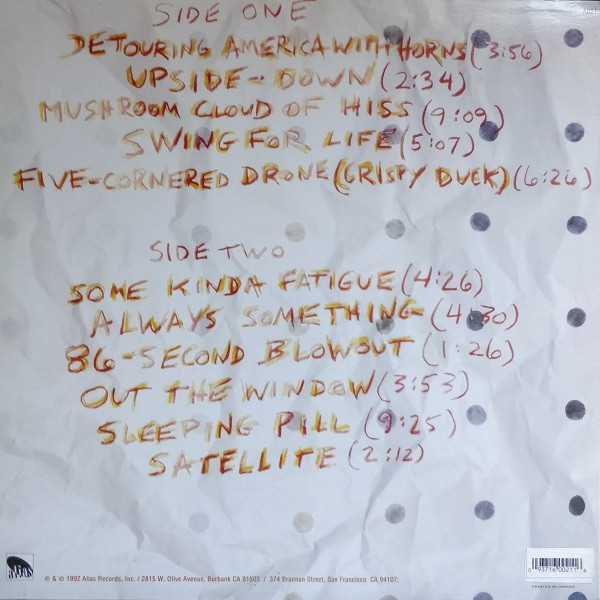 SIDE ONE
DETOURING AMERICA WITH HORNS (3:56)
UPSIDE-DOWN (2:34)
MUSHROOM CLOUD OF HISS (9:09)
SWING FOR LIFE (5:07)
FIVE-CORNERED DRONE (CRISPY DUCK) (6:26)
SIDE TWO
SOME KINDA FATIGUE (4:26)
ALWAYS SOMETHING (4:30)
86-SECOND BLOWOUT (1:26)
OUT THE WINDOW (3:53)
SLEEPING PILL (9:25)
SATELLITE (2:12)
alias
℗ & © 1992 Alias Records, Inc. / 2815 W. Olive Avenue, Burbank CA 91505 / 374 Brannan Street, San Francisco CA 94107.
0 93716 00211 6